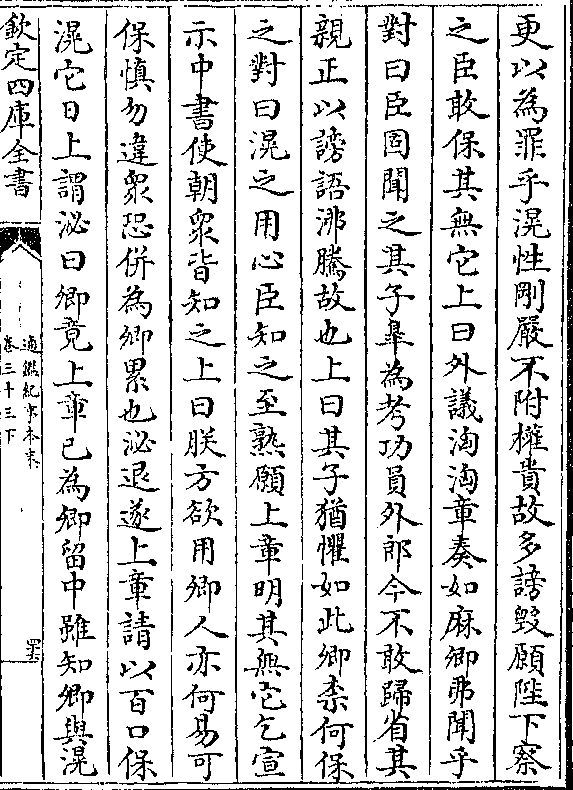 更以為罪乎滉性剛嚴不附權貴故多謗毀願陛下察
之臣敢保其無它上曰外議洶洶章奏如麻卿弗聞乎
對曰臣固聞之其子臯為考功員外郎今不敢歸省其
親正以謗語沸騰故也上曰其子猶懼如此卿柰何保
之對曰滉之用心臣知之至熟願上章明其無它乞宣
示中書使朝衆皆知之上曰朕方欲用卿人亦何易可
保慎勿違衆恐併為卿累也泌退遂上章請以百口保
滉它日上謂泌曰卿竟上章已為卿留中雖知卿與滉
欽定四庫全書
通鑑紀事本末
卷三十三下